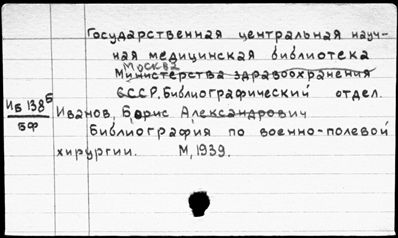 Государственная центральная науч-
ная медицинская библиотека
Москва
Министерства здравоохранения
СССР. Библиографический отдел.
ИБ 138б
БФ
Иванов, Борис Александрович
Библиография по военно-полевой
хирургии. М, 1939.